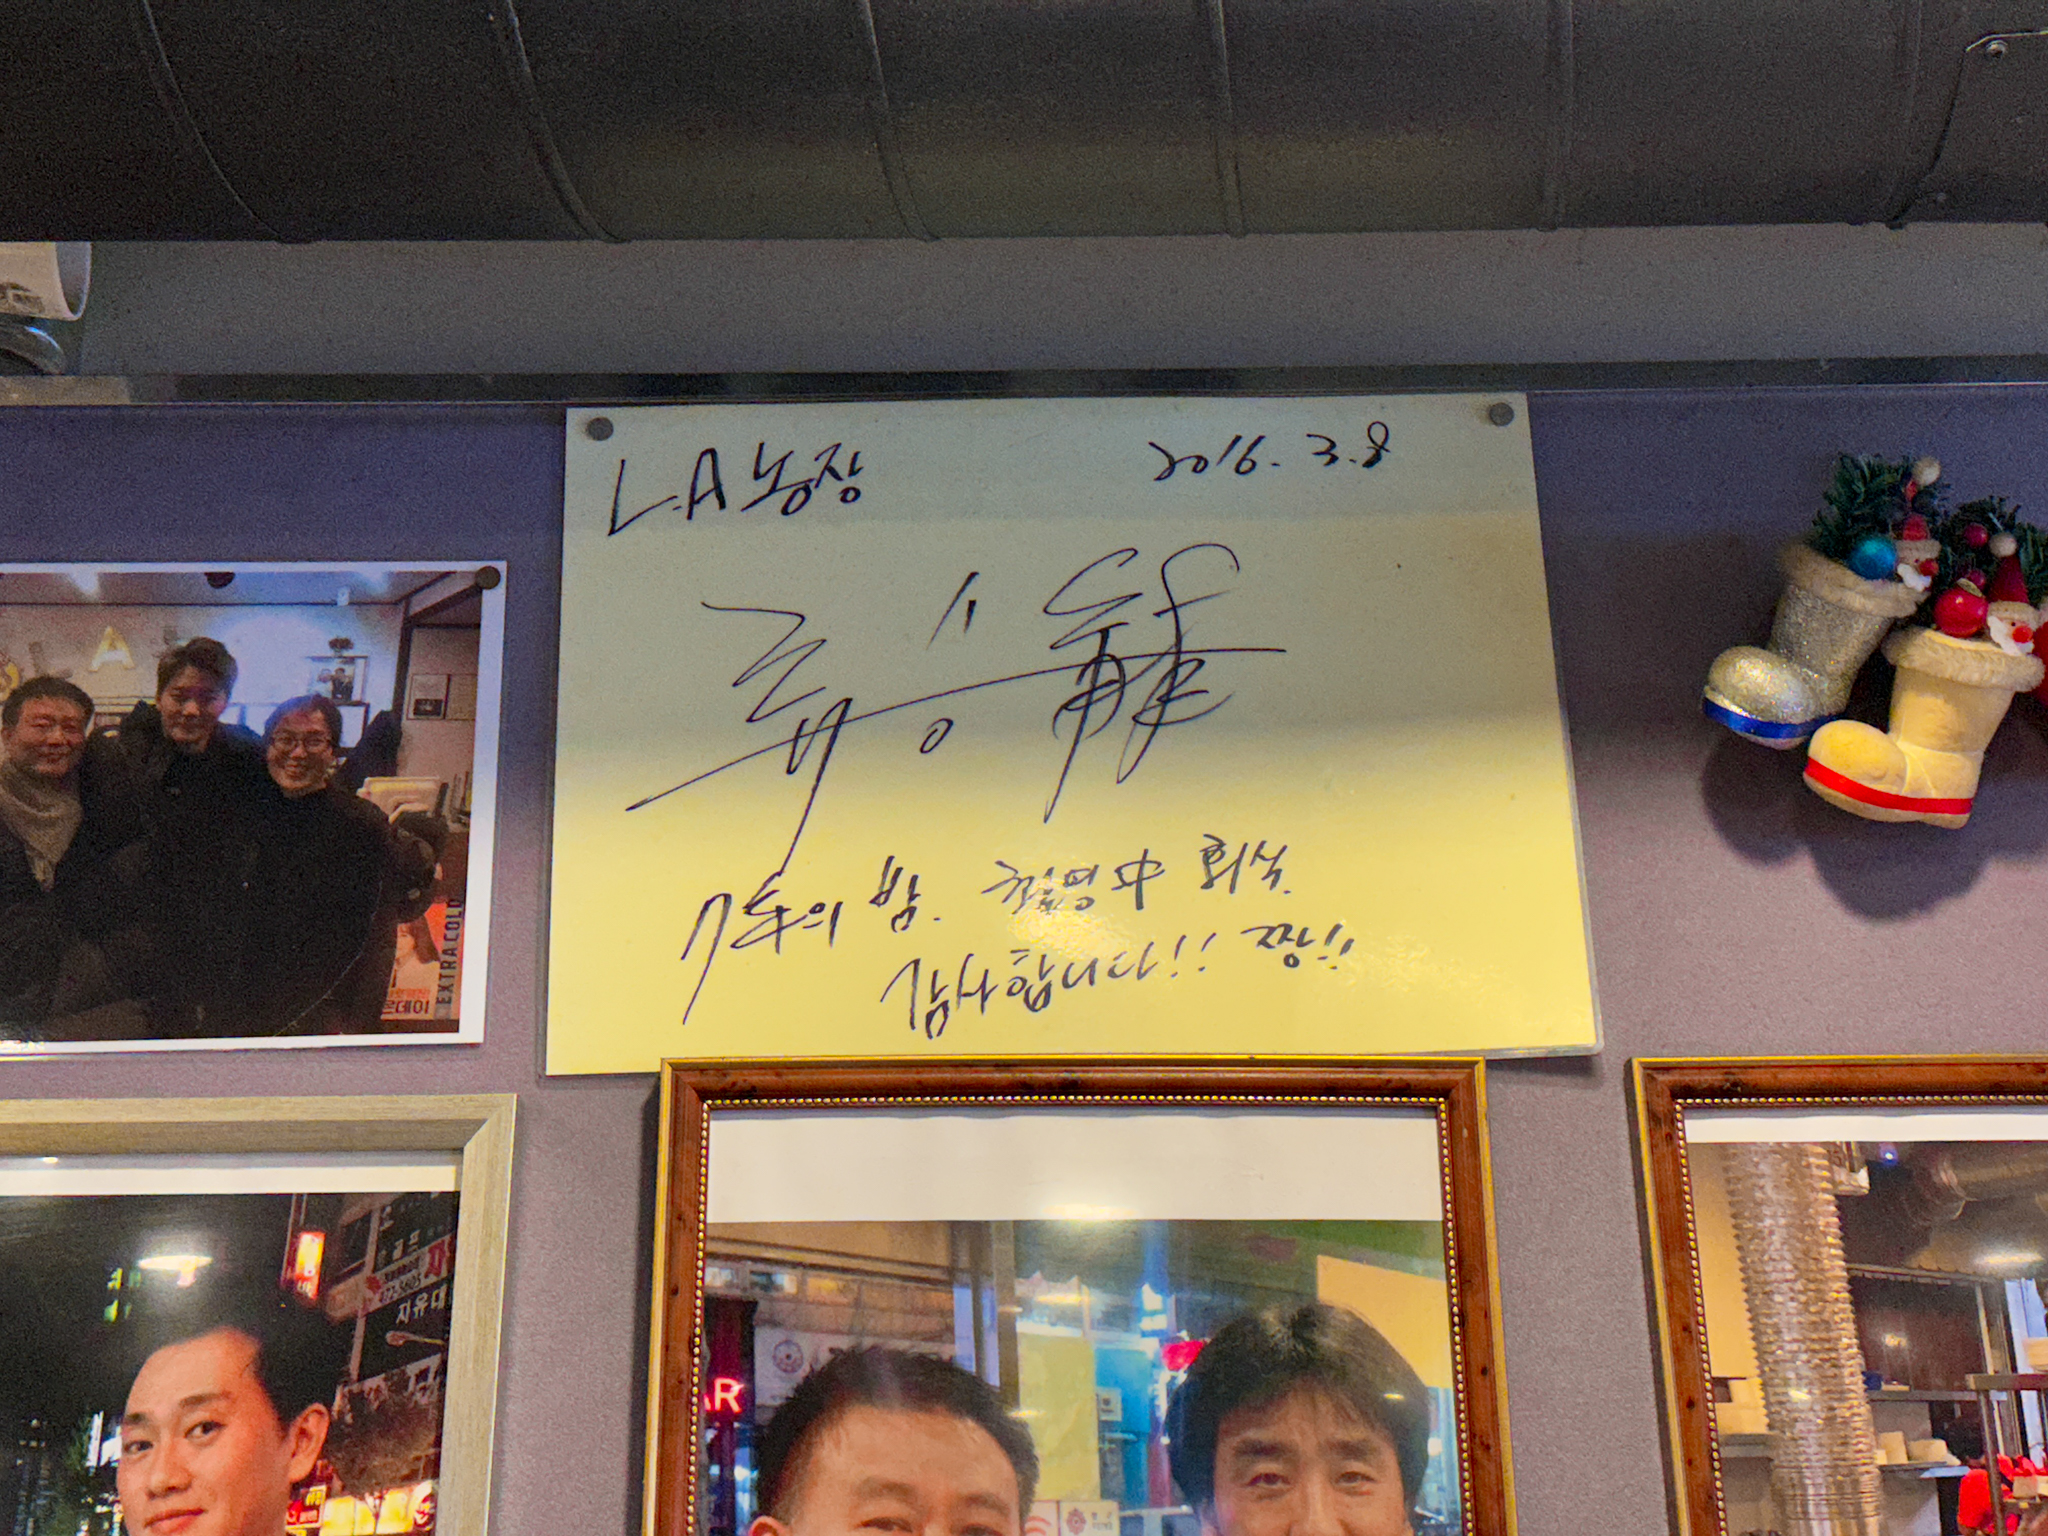 L.A 농장 2016. 3. 8
류승龍
7년의 밤. 촬영中 회식.
감사합니다!! 짱!!
A
EXTRA COLD
자유대
AR